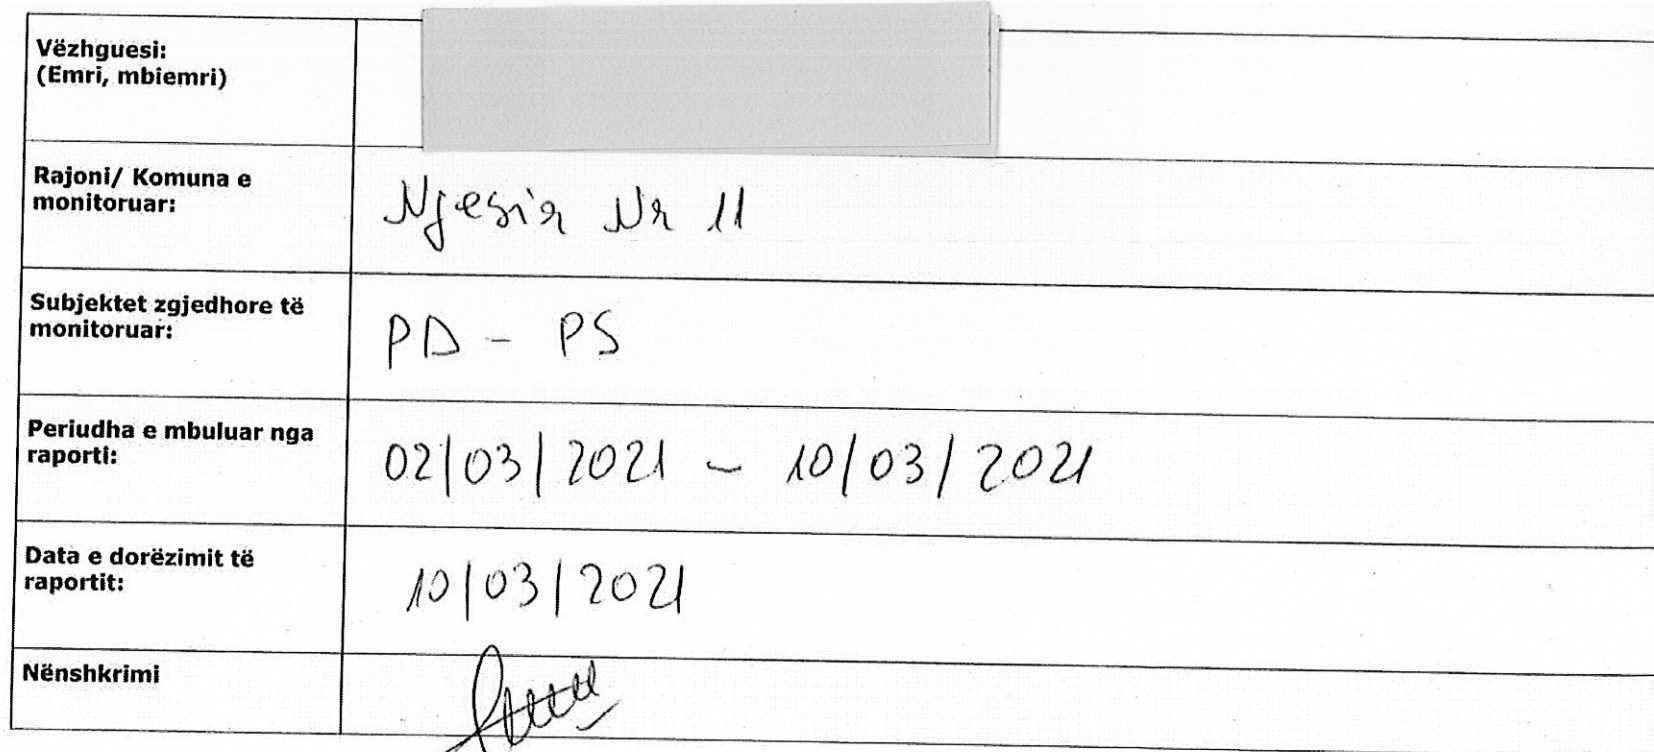 Vëzhguesi:
(Emri, mbiemri)
Rajoni/ Komuna e
monitoruar:
Njesia Nr 11
Subjektet zgjedhore të
monitoruar:
PD - PS
Periudha e mbuluar nga
raporti:
02/03/2021 - 10/03/2021
Data e dorëzimit të
raportit:
10/03/2021
Nënshkrimi